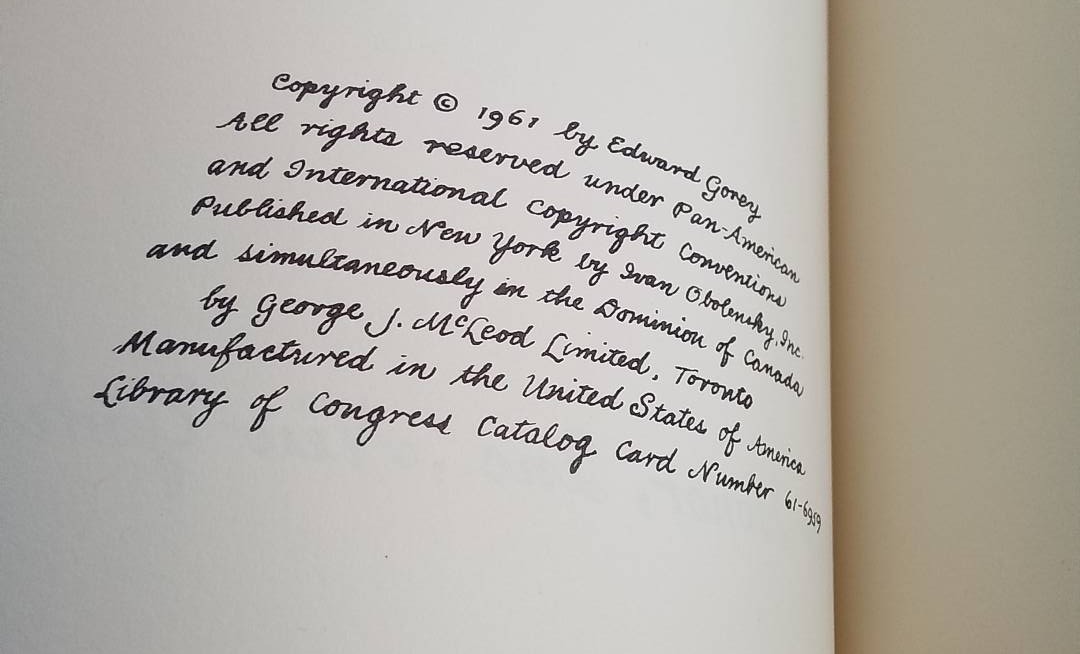 Copyright © 1961 by Edward Gorey
All rights reserved under Pan-American
and International Copyright Conventions
Published in New York by Ivan Obolensky, Inc.
and simultaneously in the Dominion of Canada
by George J. McLeod Limited, Toronto
Manufactured in the United States of America
Library of Congress Catalog Card Number 61-6959